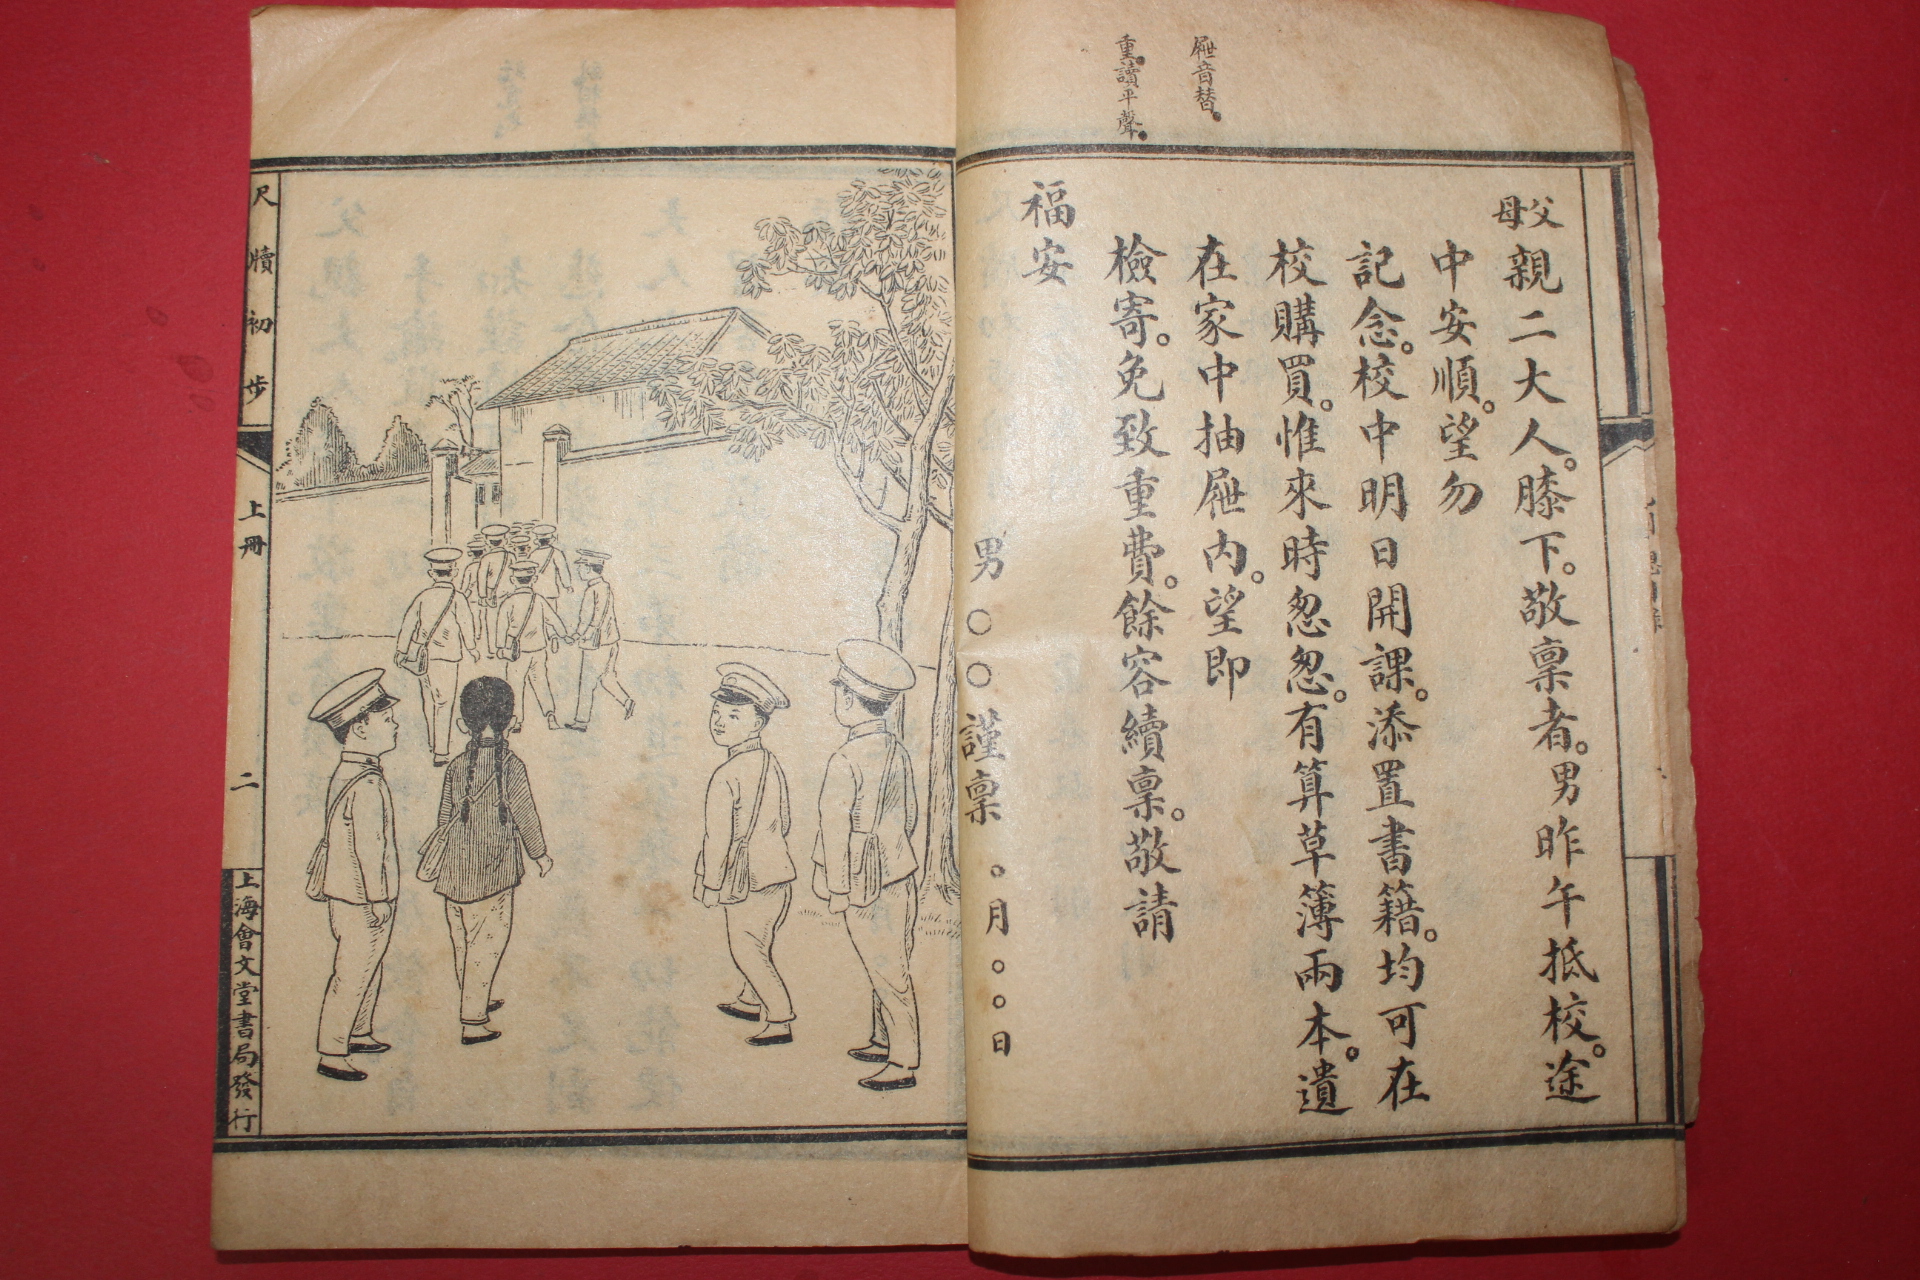 屜音替。
重。讀平聲。
父母親二大人。膝下。敬稟者。男昨午抵校。途
中安順。望勿
記念。校中明日開課。添置書籍。均可在
校購買。惟來時怱怱。有算草簿兩本。遺
在家中抽屜內。望即
檢寄。免致重費。餘容續稟。敬請
福安
男〇〇謹稟 〇月〇〇日
尺牘初步 上冊 二 上海會文堂書局發行